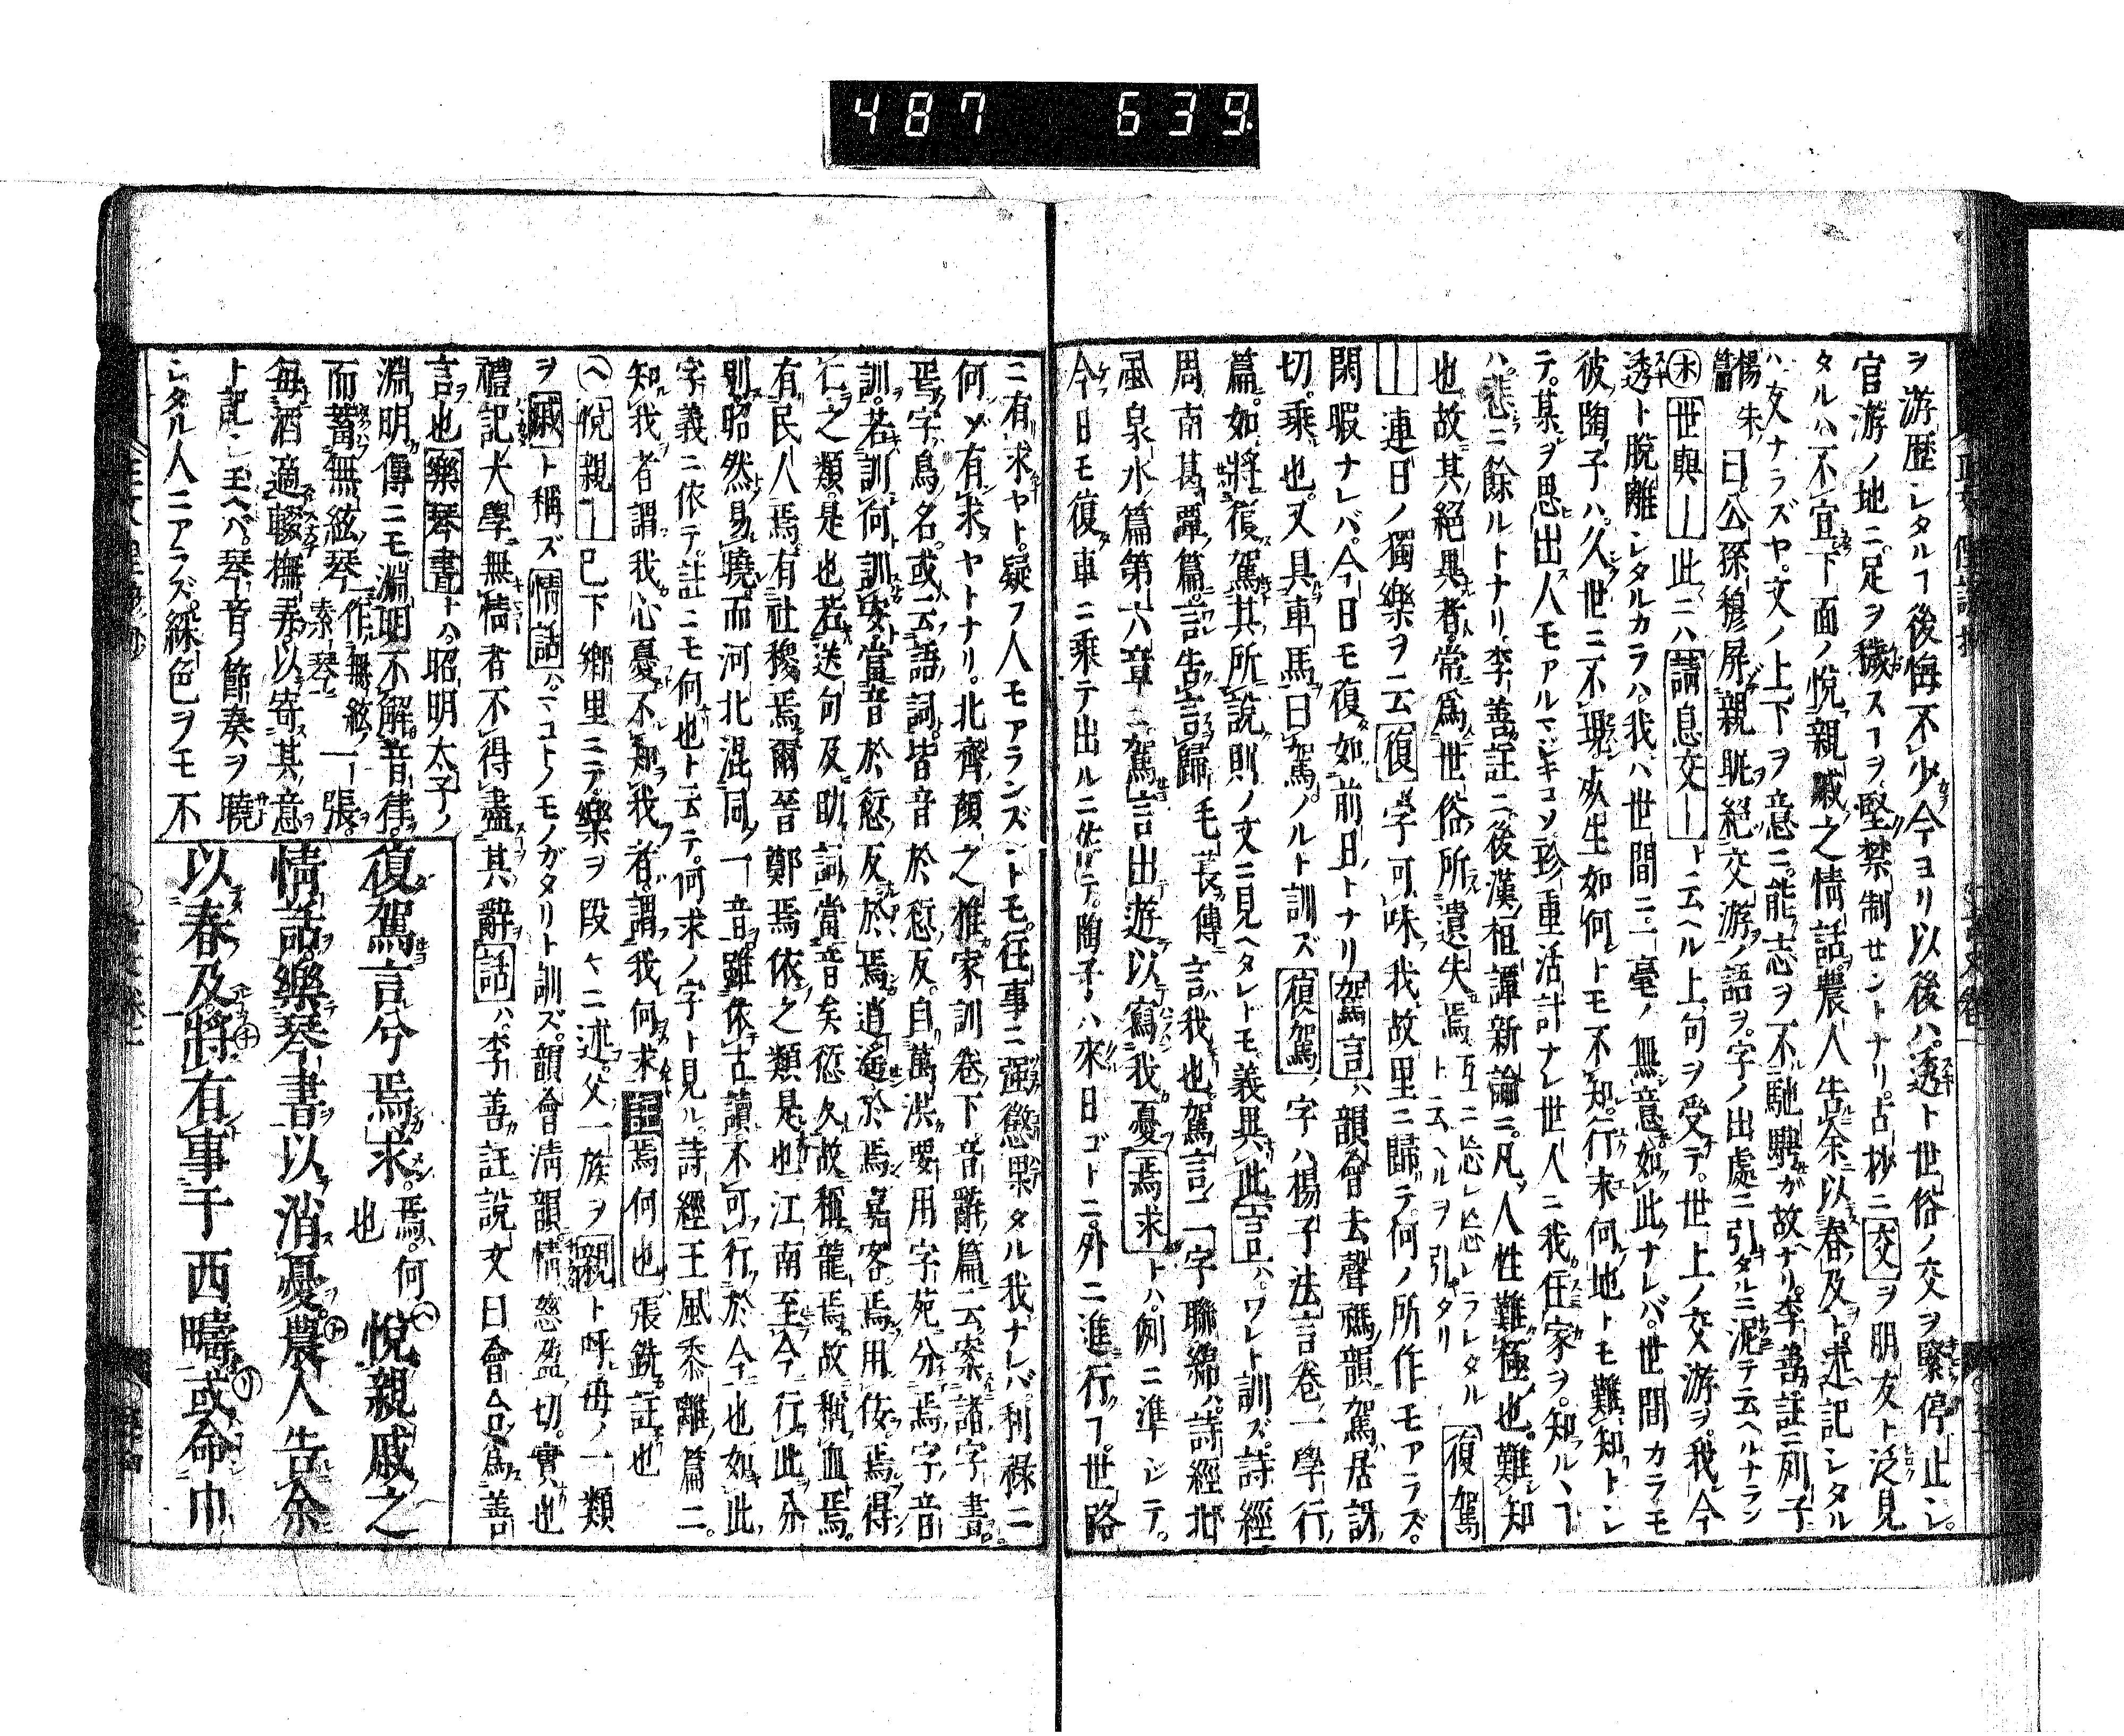 487 639
ヲ游歴シタルヿ後悔不少今ヨリ以後ハ透ト世俗ノ交ヲ緊停止シ。
官游ノ地ニ足ヲ穢スヿヲ堅禁制セントナリ。古抄ニ交ヲ朋友ト泛見
タルハ不宜下面ノ悅親戚之情話農人告余以春及ト述記シタル
ハ友ナラズヤ。文ノ上下ヲ意ニ能志ヲ不馳騁ガ故ナリ。李善註ニ列子
楊朱篇曰公孫穆屏親昵絕交游ノ語ヲ字ノ出處ニ引タルニ泥テ云ヘルナラン
㋭世與｜此ニハ請息交｜ト云ヘル上句ヲ受テ世上ノ交游ヲ我今
透ト脫離シタルカラハ我ハ世間ニ一毫ノ無意如此ナレバ世間カラモ
彼陶子ハ久世ニ不現死生如何トモ不知行末何地トモ難知トシ
テ某ヲ思出人モアルマジキコソ珍重活計ナレ世人ニ我住家ヲ知ルヽヿ
ハ悲ニ餘ルトナリ李善註ニ後漢桓譚新論ニ凡人性難極也難知
也故其絕異者常爲世俗所遺失焉ト云ヘルヲ引タリ互ニ忘レ忘レラレタル復駕
｜連日ノ獨樂ヲ云復字可味我故里ニ歸テ何ノ所作モアラズ。
閑暇ナレバ今日モ復如前日トナリ駕言ハ韻會去聲禡韻駕居訝
切乘也又具車馬曰駕ノルト訓ズ復駕ノ字ハ楊子法言卷一學行
篇如將復駕其所說則ノ文ニ見ヘタレトモ義異此言ハワレト訓ズ詩經
周南葛覃篇言告言歸毛萇傳言我也駕言二字聯綿ハ詩經邶
風泉水篇第六章ニ駕言出遊以寫我憂焉求トハ例ニ準シテ。
今日モ復車ニ乘テ出ルニ佐リテ陶子ハ來日ゴトニ外ニ進行ヿ世路
ニ有求ヤト疑フ人モアランズレトモ任事ニ彌懲果タル我ナレバ利祿ニ
何ゾ有求ヤトナリ。北齊顏之推家訓卷下音辭篇云案諸字書。
焉字鳥名或云語詞皆音於愆反自葛洪要用字苑分焉字音
訓若訓何訓安當音於愆反於焉逍遙於焉嘉客焉用佞焉得
仁之類是也若送句及助詞當音矣愆久故稱龍焉故稱血焉。
有民人焉有社稷焉爾晉鄭焉依之類是也江南至今行此分
別昭然易曉而河北混同一音雖依古讀不可行於今也如此
字義ニ依テ註ニモ何也ト云テ何求ノ字ト見ル詩經王風黍離篇ニ。
知我者謂我心憂不知我者謂我何求註焉何也張銑註也
㋬悅親｜已下鄉里ニテ樂ヲ段々ニ述父一族ヲ親ト呼毋ノ一類
ヲ戚ト稱ズ情話ハマコトノモノガタリト訓ズ韻會淸韻情慈盈切實也
禮記大學無情者不得盡其辭話ハ李善註說文曰會合爲善
言也樂琴書トハ昭明太子ノ
淵明傳ニモ淵明不解音律
而蓄無絃琴一作無絃素琴一張
每酒適輟撫弄以寄其意
ト記シ玉ヘバ琴音ノ節奏ヲ曉
シタル人ニアラズ綵色ヲモ不
復駕言兮焉求。焉。何也㋬悅親戚之
情話。樂琴書以消憂。㋣農人告余
以春及㋠將有事于西疇。㋷或命巾